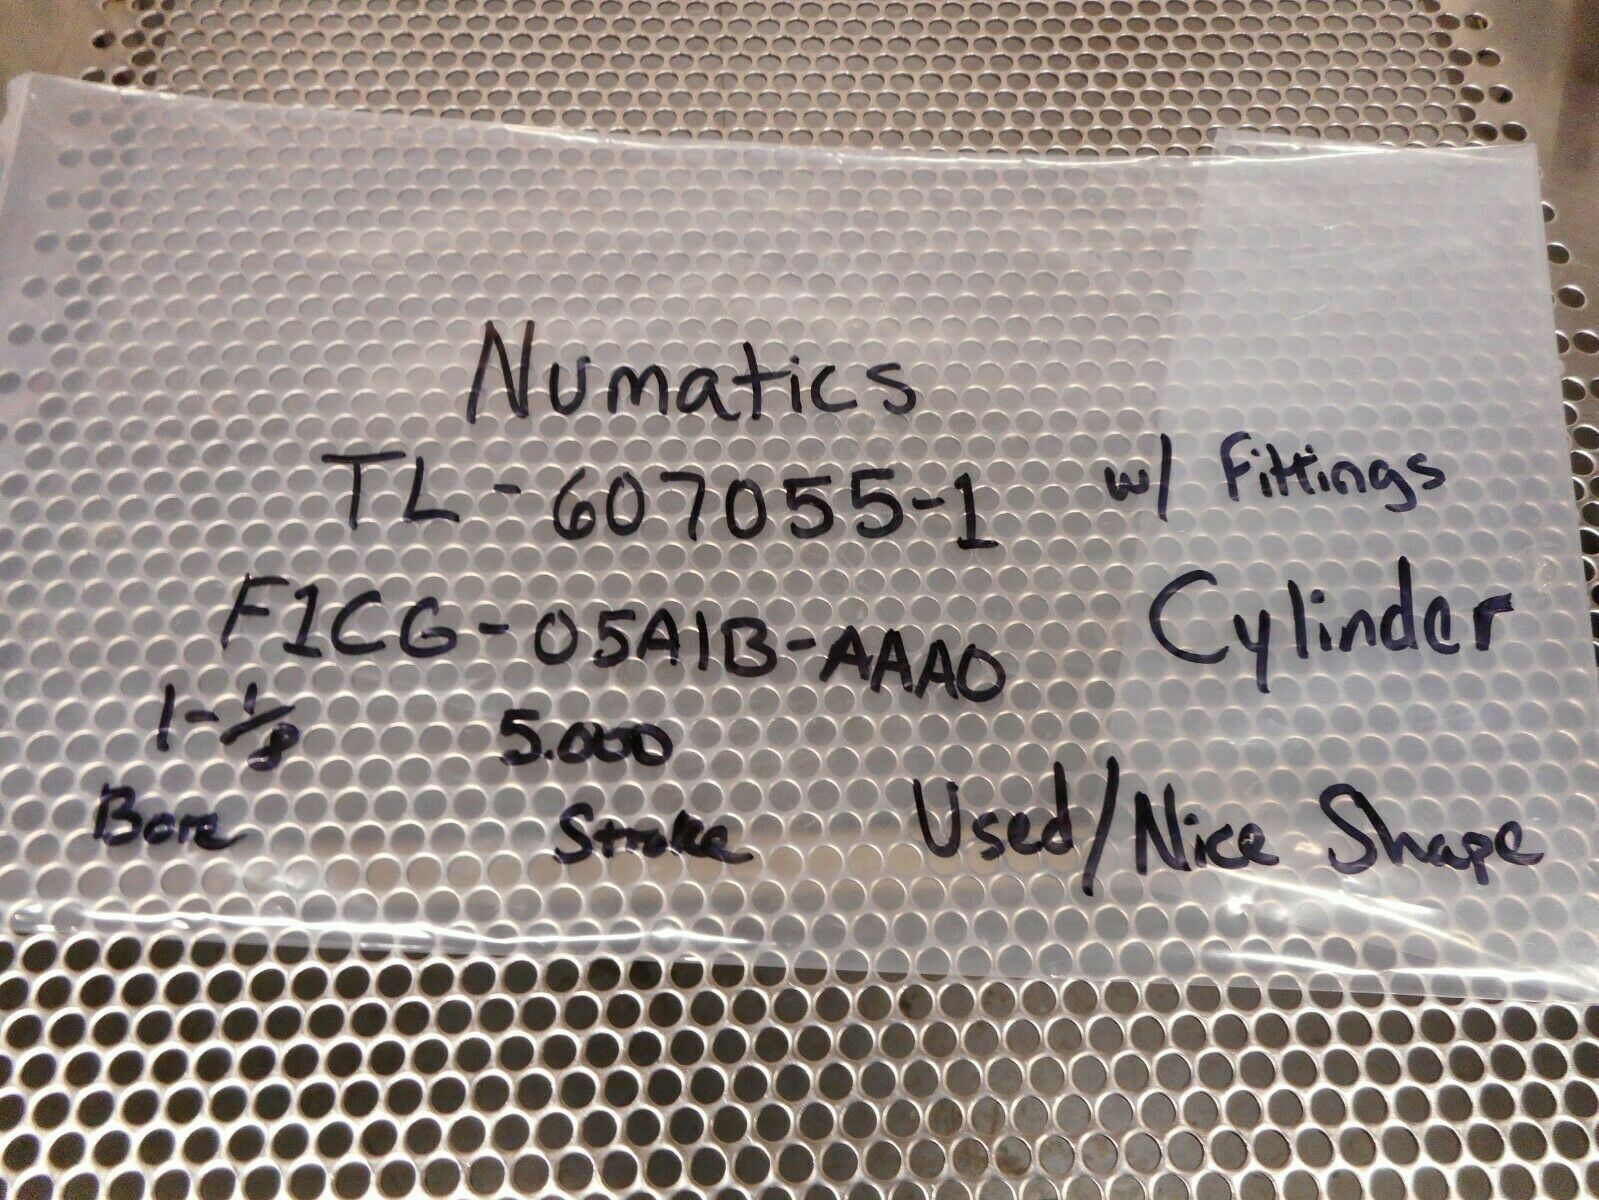 Numatics
TL-607055-1 w/ Fittings
F1CG-05A1B-AAA0 Cylinder
1-1/8 5.000
Bore Stroke Used/Nice Shape